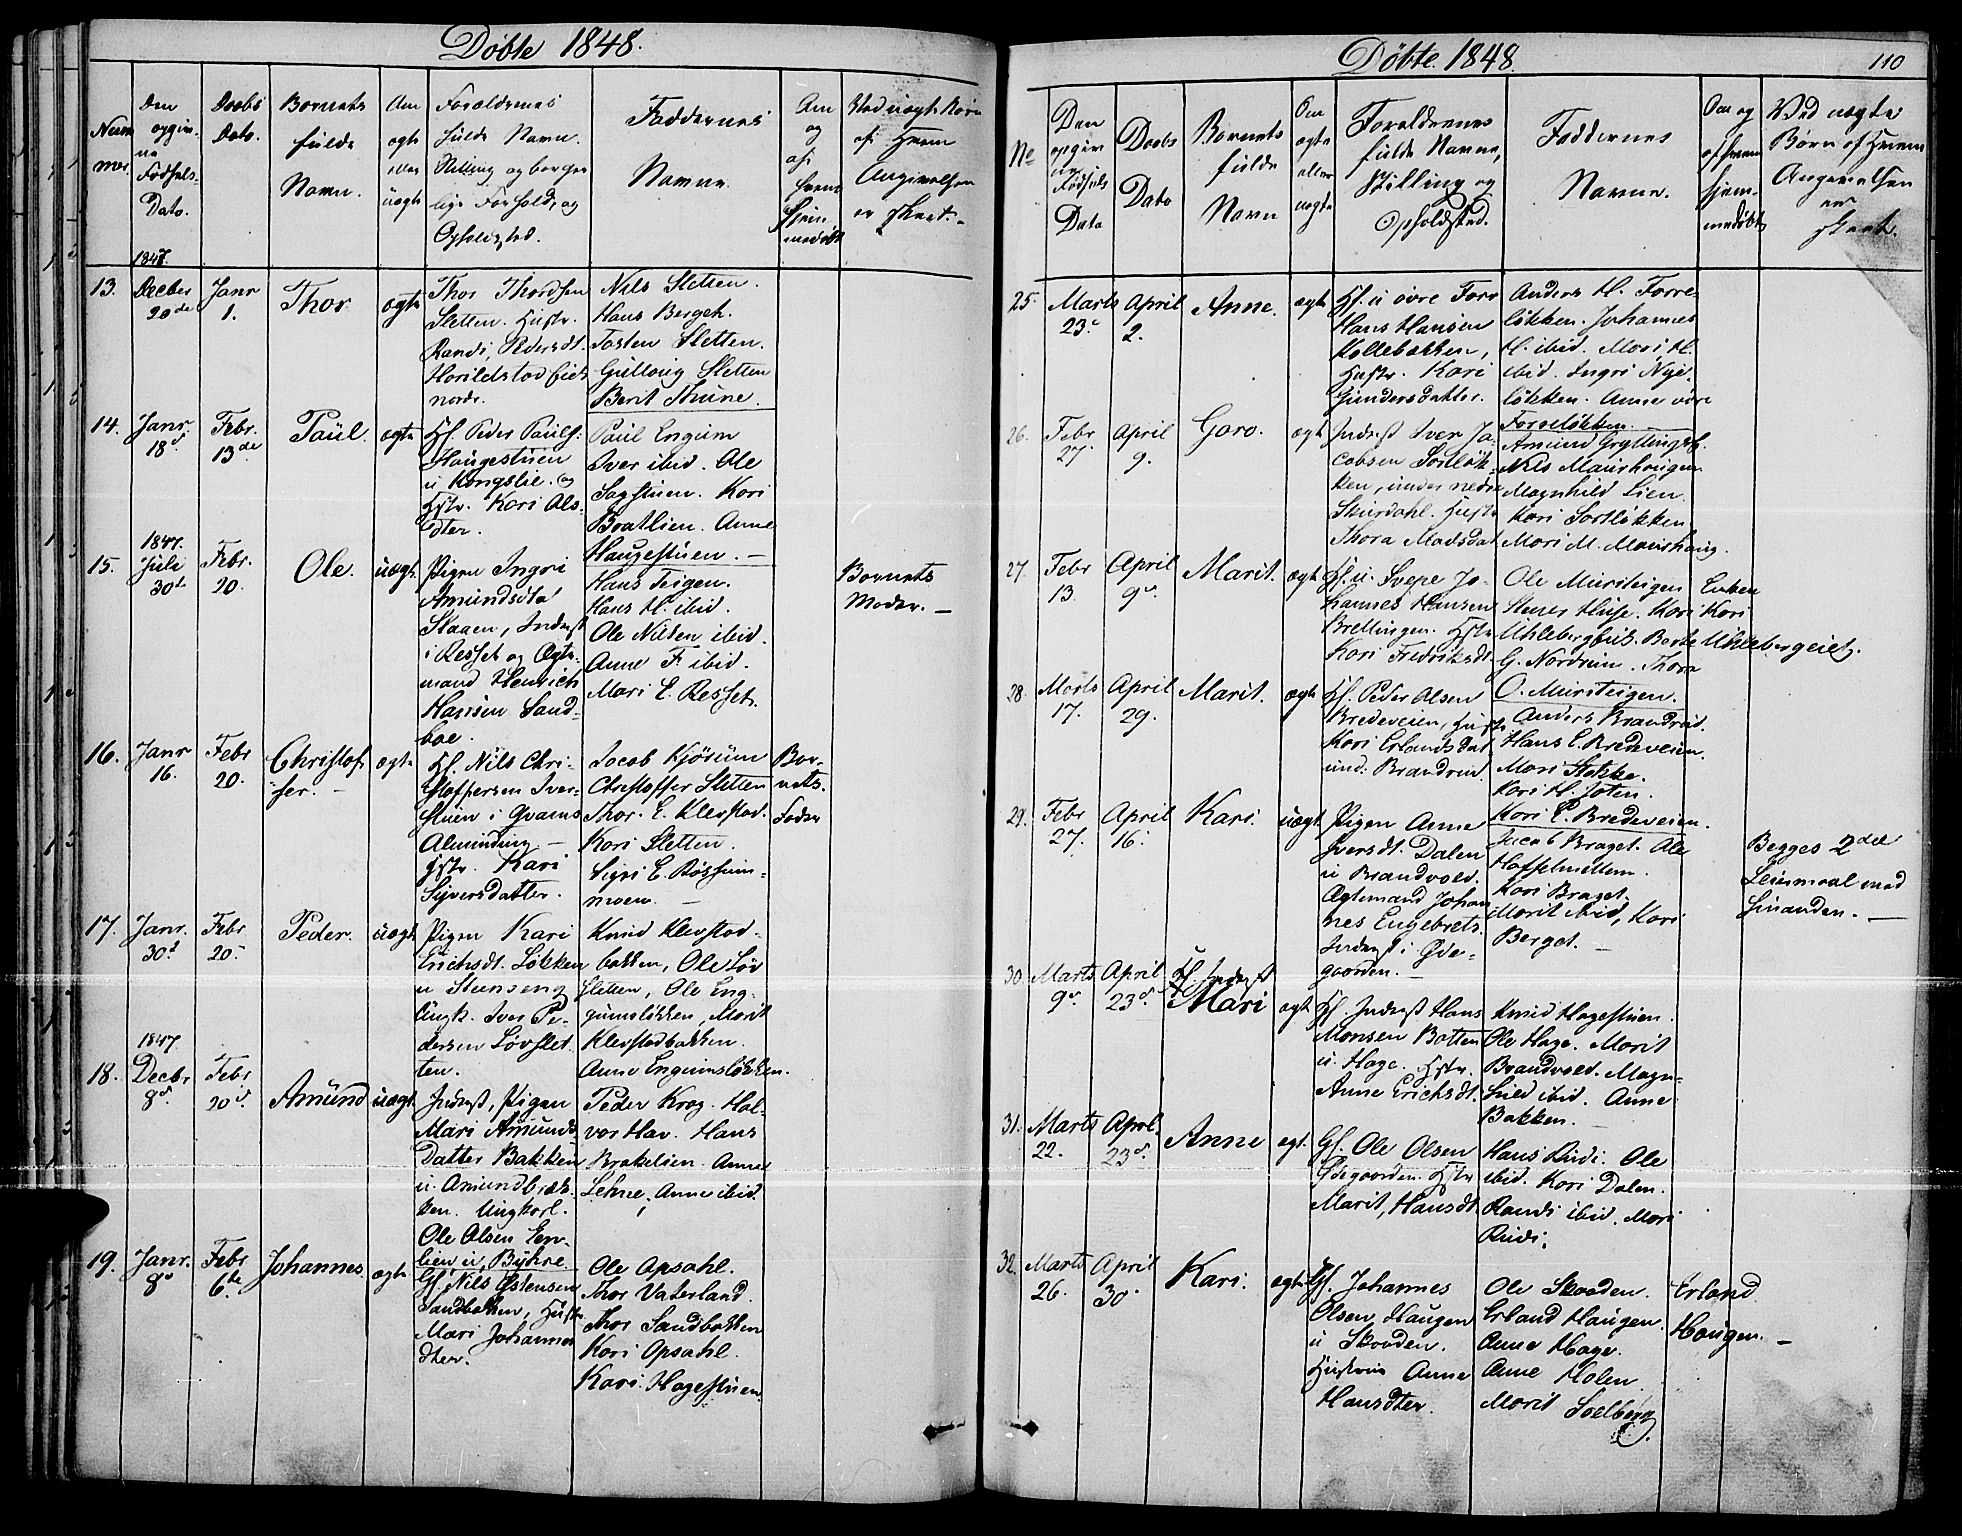 Døbte 1848.
Num
mer.
Den
opgiv
ne
Fødsels
Dato.
1847.
Daabs
Dato.
Barnets
fulde
Navn.
Om
ægte
eller
uægte
Forældrenes
fulde Navn.
Stilling og borger
lige Forhold, og
Opholdsted.
Faddernes
Navne.
Om
og
af
hvem
hjem
medøbt
Ved uægte Børn
af hvem
Angivelsen
er skeet.
13. Decber
20de
Janr
1.
Thor.
ægte
Thor Thordsen
Sletten. Hustr.
Randi Pedersdt.
Harildstad
nordr.
Nils Sletten.
Hans Berget.
Tosten Sletten.
Gullovig Sletten
Berit Thune.
14. Janr.
18d
Febr.
13de
Paul.
ægte
Hf. Peder Pauls:
Haugestuen
u Kongslie. og
Hstr. Kari Ols-
dter.
Paul Engum
Iver ibid. Ole
Sagstuen. Kari
Bratlien. Anne
Haugestuen. —
15. 1847.
Juli
30te
Febr.
20.
Ole.
uægt.
Pigen Ingri
Amundsdtr
Skaaen, Inderst
i Resset og Ægte-
mand Henrich
Hansen Sand-
boe.
Hans Teigen.
Hans H. ibid.
Ole Nilsen ibid.
Anne F. ibid.
Mari E. Resset.
Barnets
Moder. —
16. Janr
16.
Febr
20.
Christof-
fer. —
ægte
Hf. Nils Chri-
stoffersen Iver-
stuen i Qvams
Alminding —
Hstr. Kari
Syversdatter.
Jacob Kjørum
Christoffer Sletten
Thor. E. Klevstad.
Kari Sletten.
Sigri E. Røssum-
moen. —
Bar-
nets.
Fader
17. Janr.
30d
Febr
20.
Peder.
uægt.
Pigen Kari
Erichsdt. Løkken
u Stenseng
Ungk. Iver Pe-
dersen Løvslet
ten.
Knud Klevstad-
bakken, Ole Løv
sletten, Ole Eng-
gumsløkken, Marit
Klevstadbakken.
Anne Engumsløkken.
18. 1847
Decbr
8d
Febr
20d
Amund
uægt.
Inderst, Pigen
Mari Amunds
Datter Bakken
u. Amundbræk-
ken. Ungkarl.
Ole Olsen Hen-
lien u, Bykre.
Peder Krog. Hal-
vor Hav. Hans
Brækelien. Anne
Lehne, Anne ibid.
19. Janr.
8d
Febr
6te
Johannes.
ægte
Gf. Nils Østensen
Sandbakken, Hustr
Mari Johannes
dter.
Ole Opsahl.
Thor Vaterland.
Thor Sandbakken
Kari Opsahl.
Kari Hagestuen.
Døbte 1848. 110
No
Den
opgiv
ne
Fødsels
Dato
Daabs
Dato
Barnets
fulde
Navn
Om
ægte
eller
uægte
Forældrenes
fulde Navne,
Stilling og
Opholdsted.
Faddernes
Navne.
Om og
af hvem
hjem-
medøbt
Ved uægte
Børn af hvem
Angivelsen
er
skeet.
25 Marts
23d
April
2.
Anne.
ægte
Hf. u øvre Forr
Hans Hansen
Kollebakken,
Hustr. Kari
Gundersdatter.
Anders H. Forre-
løkken. Johannes
H. ibid. Mari H.
ibid. Ingri Nye-
løkken. Anne øvre
Forreløkken. —
26. Febr
27.
April
9.
Goro.
ægt
Inderst Iver Ja-
cobsen Sortløk-
ken, under nedre
Skurdahl. Hustr
Thora Madsdat
Amund Gryttingsh.
Nils Maurhougen
Magnhild Lien.
Kari Sortløkken
Mari M. Maurhaug.
27. Febr
13.
April
9d
Marit.
ægt
Hf. u. Svepe Jo-
hannes Hansen
Brettingen. Hstr
Kari Fredriksdt
Ole Mursteigen
Stener Huse. Kari
Uhlebergeiet. Berte
G. Nordrum. Thora
O. Mursteigen.
Enken
Kari
Uhlebergeiet.
28. Marts
17.
April
29.
Marit.
ægt
Hf. Peder Olsen
Bredeveien, Hustr
Kari Erlandsdat
und: Brandrud
Anders Brandrud.
Hans E. Bredeveien.
Mari Stokke.
Kari H. Joten.
Kari E. Bredeveien.
29. Febr
27.
April
16.
Kari.
uægt
Pigen Anne
Iversdt. Dalen
u Brandvold.
Ægtemand Johan
nes Engebrets.
Inderst i Øde-
gaarden. —
Jacob Braget. Ole
Hoffelmellem.
Kari Braget.
Marit ibid, Kari
Berget. —
Begges 2det
Leiermaal med
hinanden. —
30. Marts
9d
April
23d
Mari
ægt
Hf. Inderst Hans
Monsen Botten
u. Hage. Hstr.
Anne Erichsdt.
Knud Hagestuen.
Ole Hage. Marit
Brandvold. Magn-
hild ibid. Anne
Bakken. —
31. Marts
22.
Aprl.
23d
Anne
egt.
Gf. Ole Olsen
Ødegaarden. Hstr
Marit, Hansdt.
Hans Rudi. Ole
ibid. Kari Dalen.
Randi ibid. Mari
Rudi.
32. Marts
26.
April
30.
Kari.
ægte
Hf. Johannes
Olsen Haugen
u Skaaden.
Hustrue Anne
Hansdter.
Ole Skaaden.
Erland Haugen.
Anne Hage.
Anne Holen
Marit Soelberg.
Erland
Haugen. —